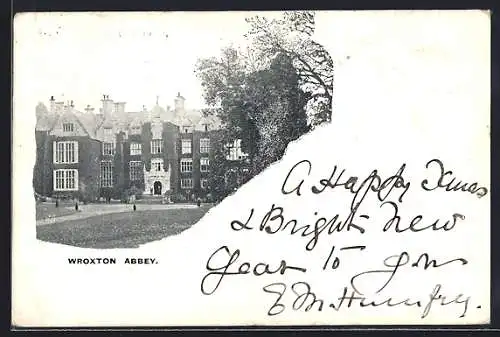 WROXTON ABBEY.
A Happy Xmas
& Bright New
Year to you
E M Humfrey.